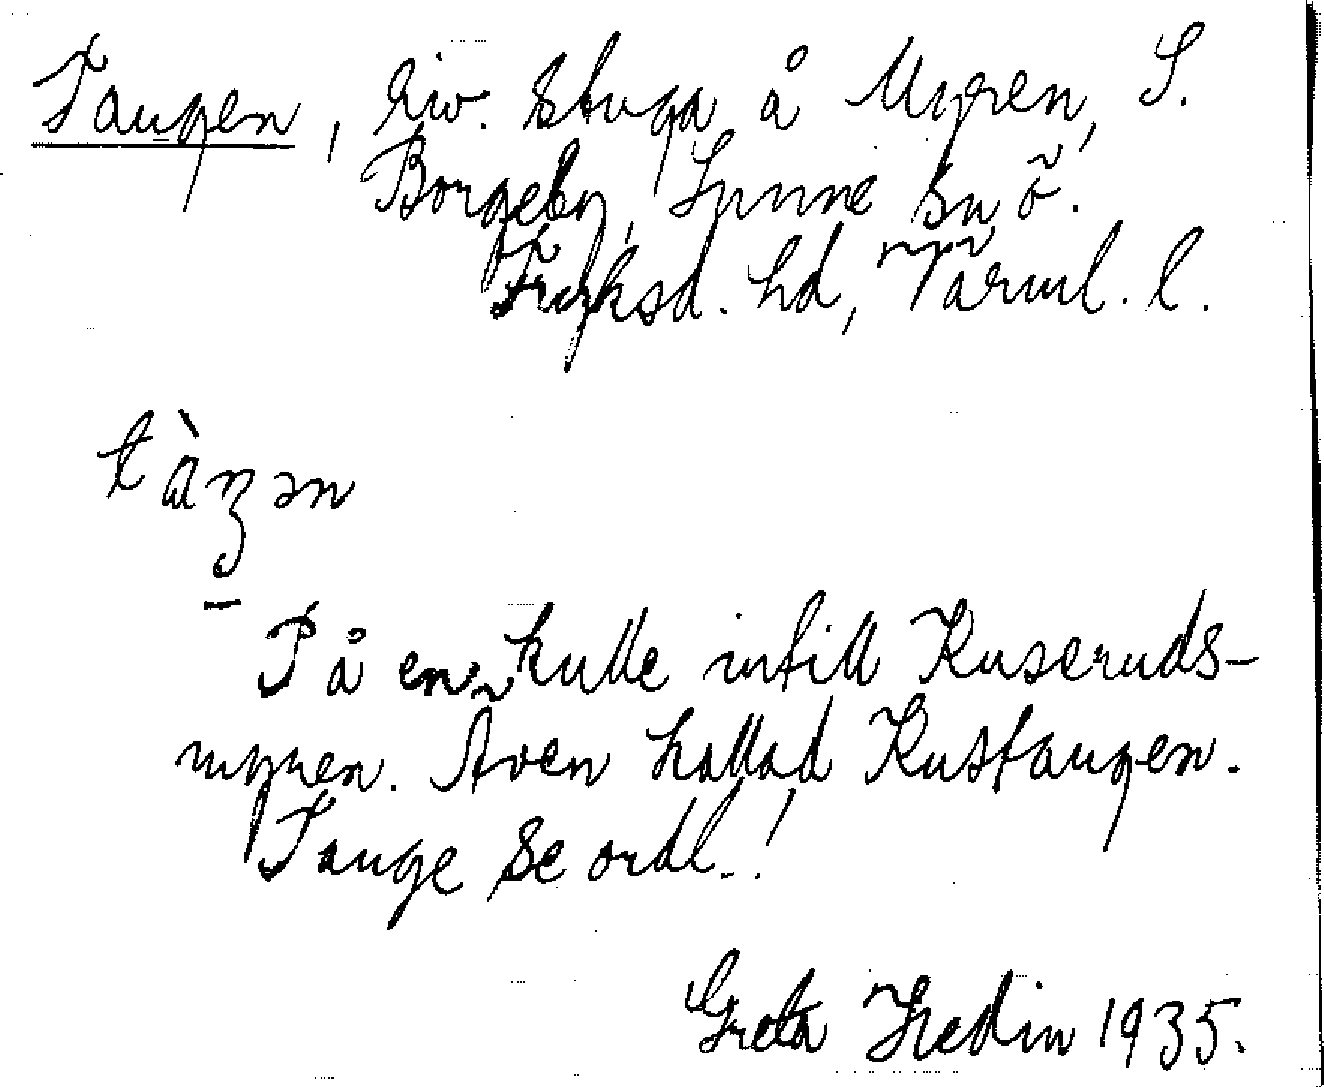 Tangen, riv. stuga å Myren, S.
Borgeby, Sunne sn ö.
Fryksd. hd, Värml. l.
tàŋən
På en kulle intill Kuseruds-
myren. Även kallad Kustangen.
Tange se ordl.!
Greta Hedin 1935.